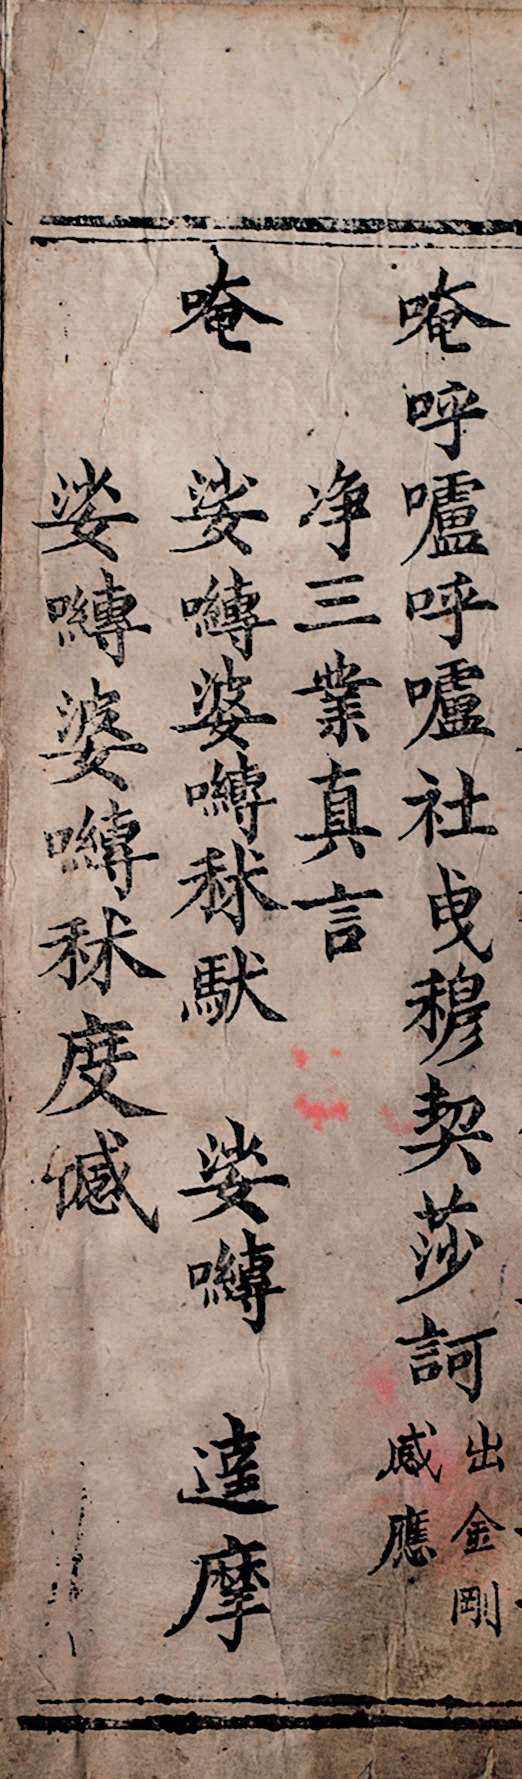 唵呼嚧呼嚧社曳穆契莎訶
出金剛
感應
净三業真言
唵 娑嚩婆嚩秫馱 娑嚩 達摩
娑嚩婆嚩秫度憾